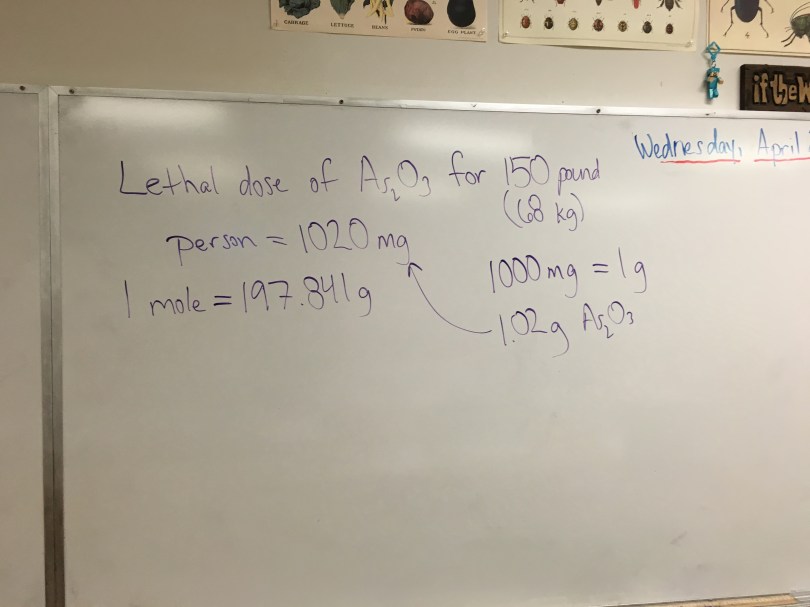 CABBAGE LETTUCE BEANS EGG PLANT
if the
Wednesday, April
Lethal dose of As₂O₃ for 150 pound
(68 kg)
person = 1020 mg
1000 mg = 1g
1 mole = 197.841g
1.02g As₂O₃